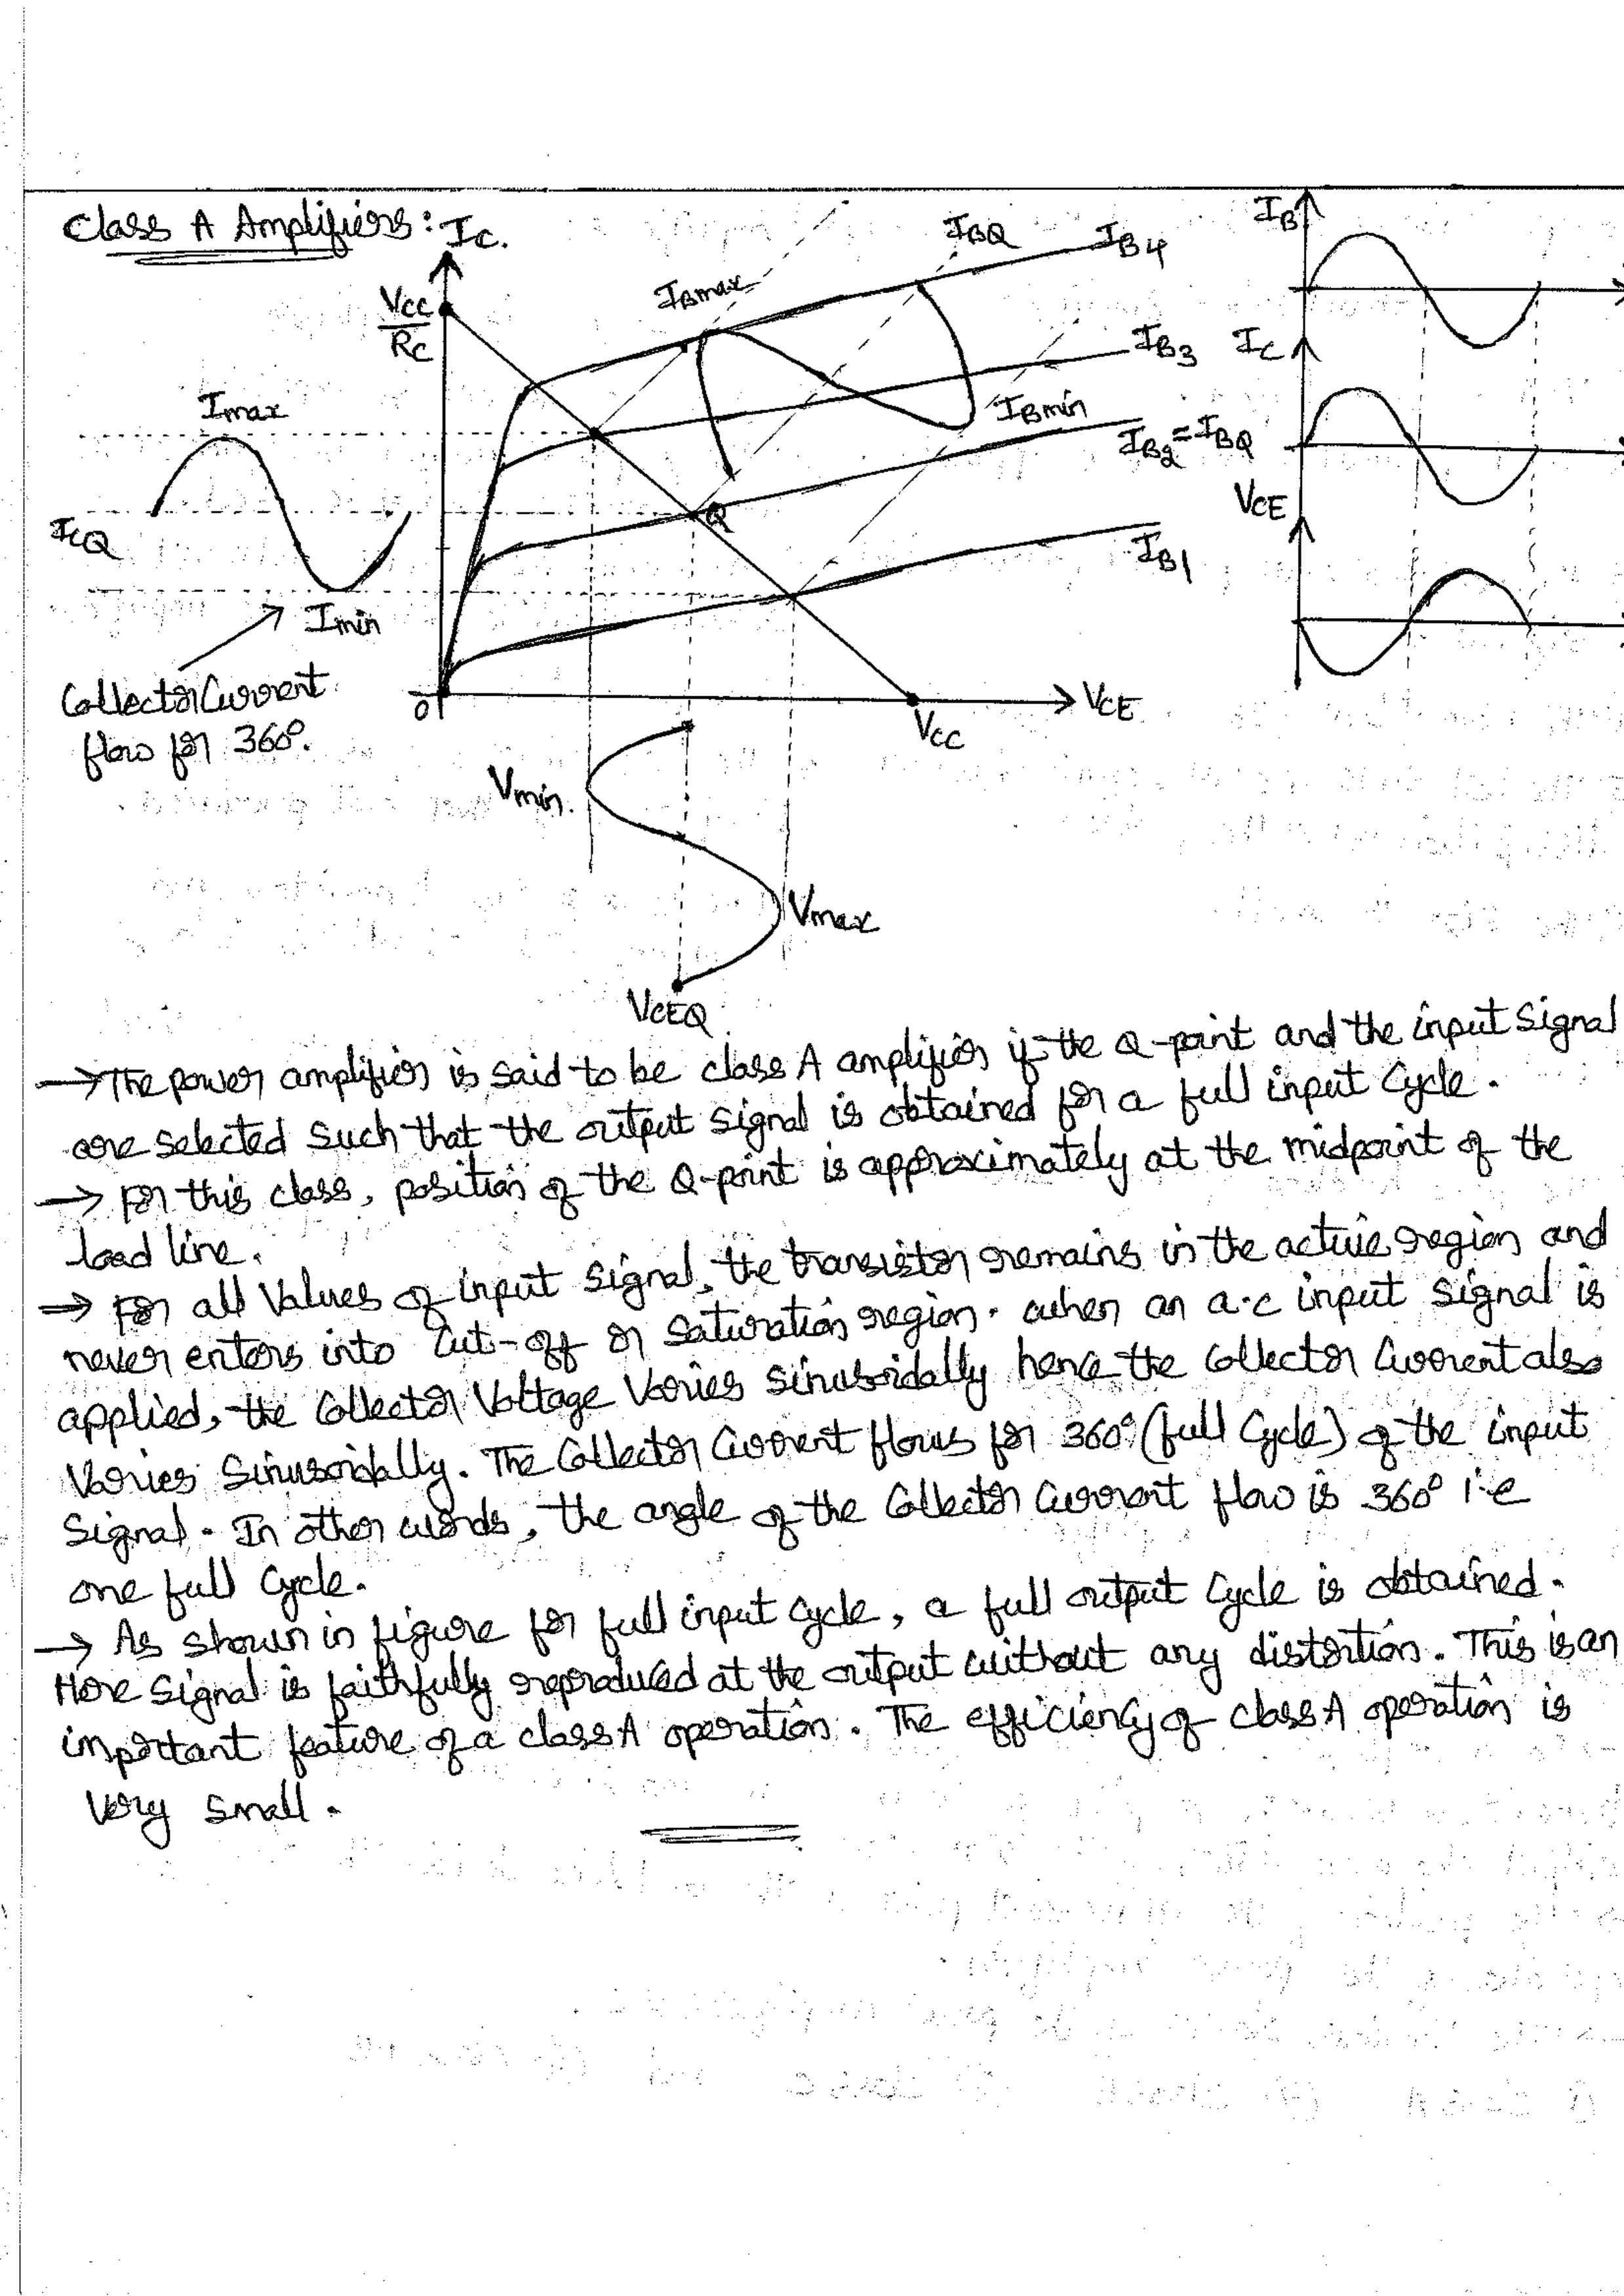 Class A Amplifiers:
IC.
VCC
RC
IBmax
IBQ
IB4
IB3
IBmin
IB2 = IBQ
IB1
Imax
ICQ
Imin
Collector Current
flow for 360°.
Q
0
VCC
VCE
Vmin.
Vmax
VCEQ
IB
IC
VCE
→ The power amplifier is said to be class A amplifier if the Q-point and the input signal
are selected such that the output signal is obtained for a full input cycle.
→ For this class, position of the Q-point is approximately at the midpoint of the
load line.
→ For all values of input signal, the transistor remains in the active region and
never enters into cut-off or saturation region. when an a.c input signal is
applied, the collector voltage varies sinusoidally hence the collector current also
varies sinusoidally. The collector current flows for 360° (full cycle) of the input
signal. In other words, the angle of the collector current flow is 360° i.e
one full cycle.
→ As shown in figure for full input cycle, a full output cycle is obtained.
Here signal is faithfully reproduced at the output without any distortion. This is an
important feature of a class A operation. The efficiency of class A operation is
very small.